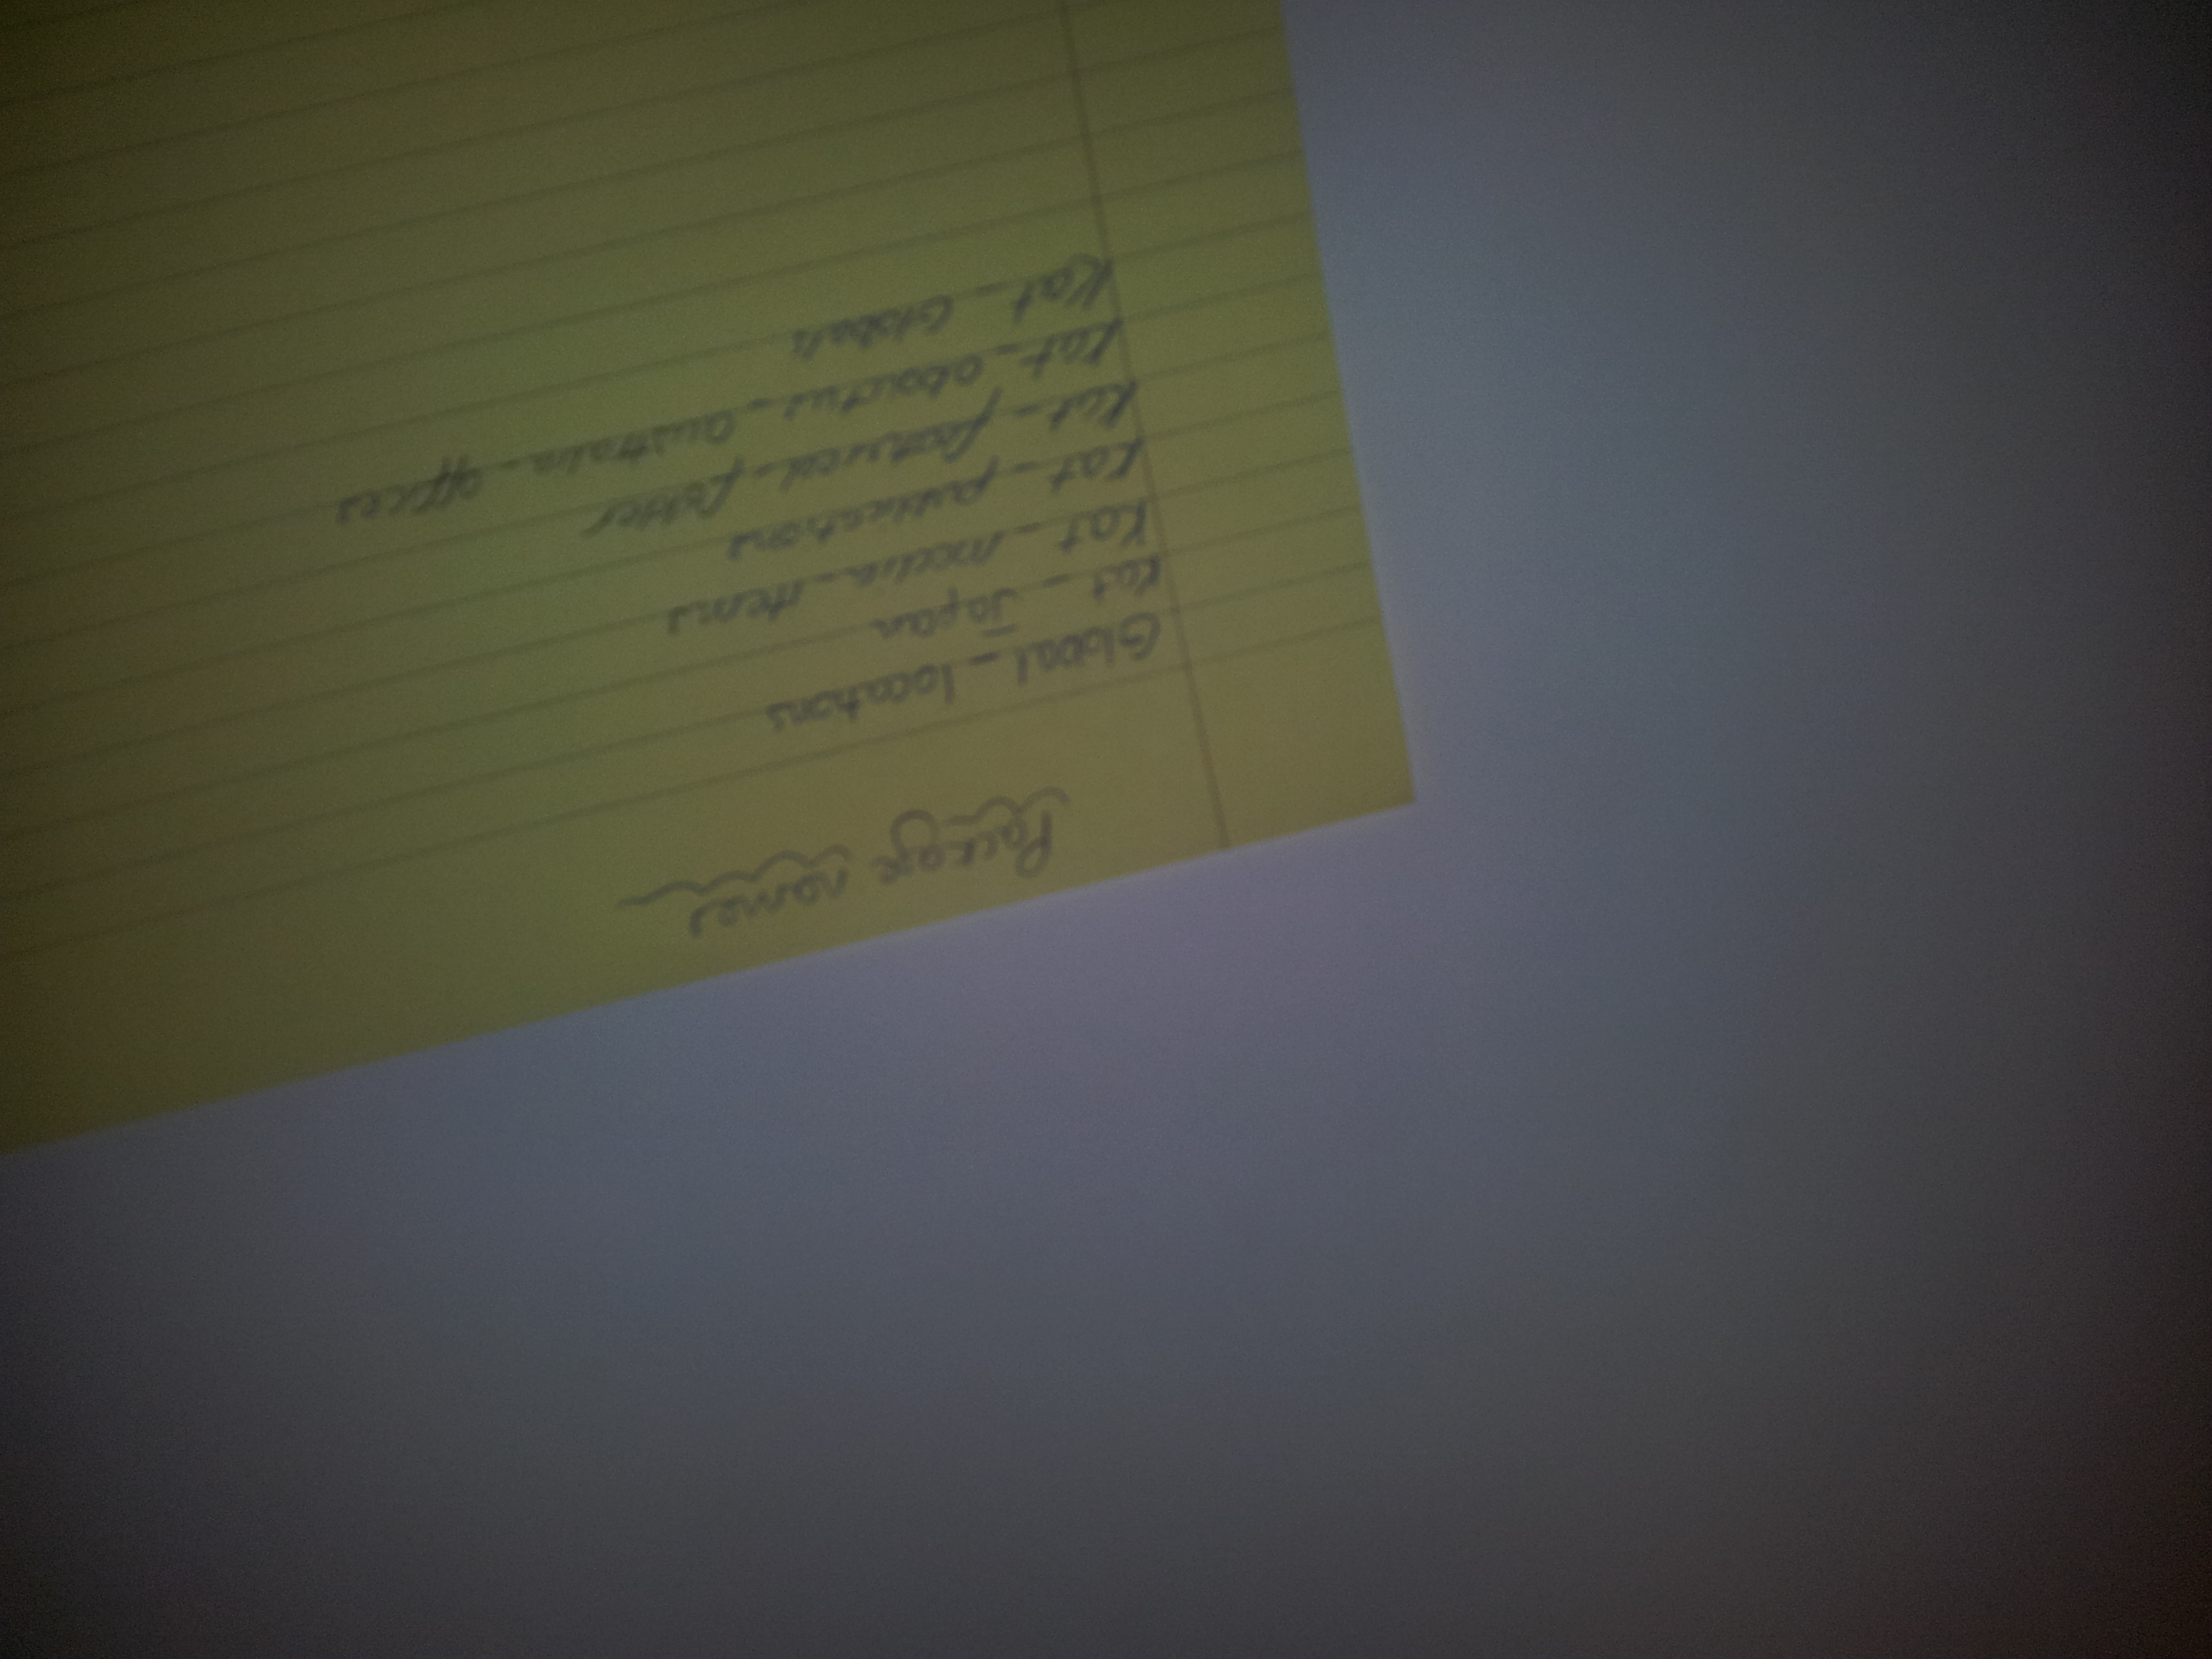 Package names
Global - locations
Kat - Japan
Kat - media - items
Kat - publications
Kat - featured - footer
Kat - - australia - offices
Kat - Globals